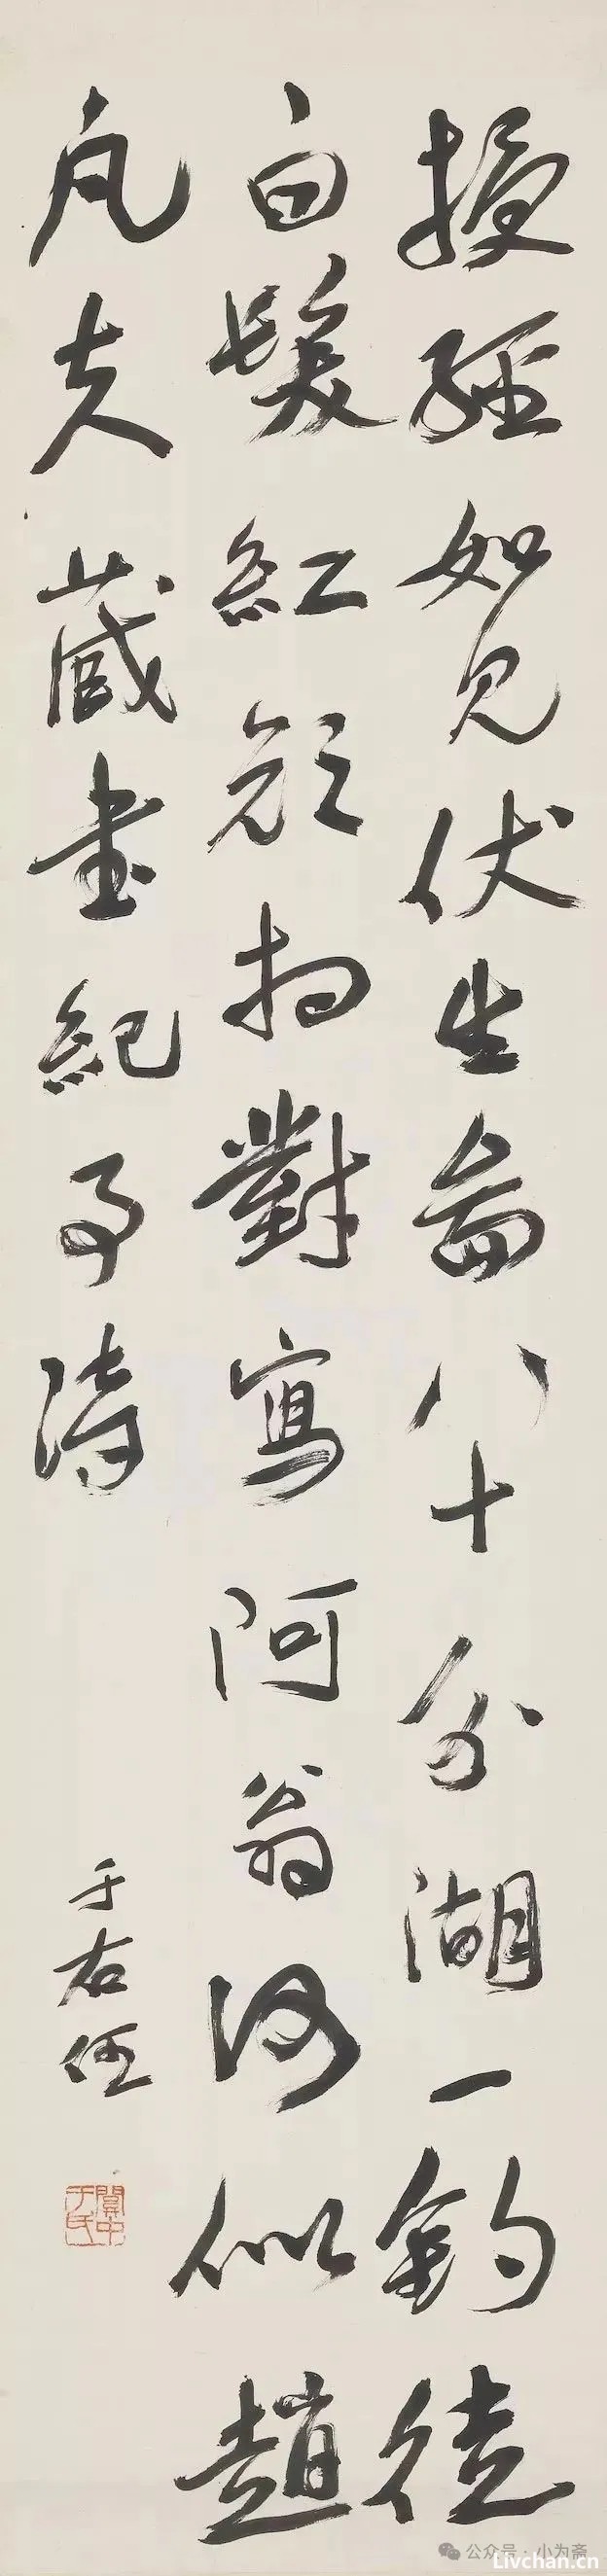 授經如見伏生啚八十分湖一釣徒
白髮紅顏相對寫阿翁何似趙
凡夫藏書紀事詩
于右任
關中于氏
公众号·小为斋
Livchan.cn